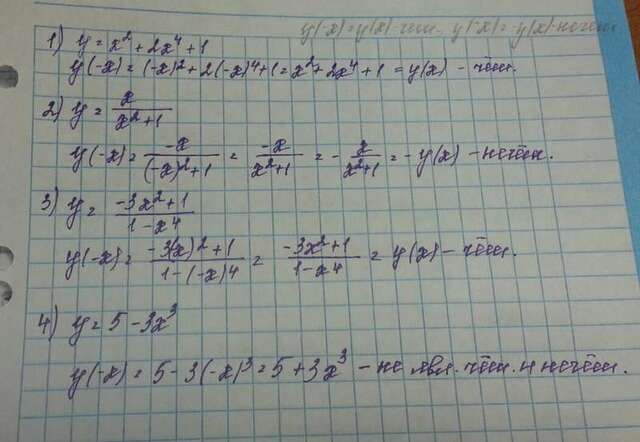 y(-x) = y(x) - чет. y(-x) = -y(x) - нечет
1) y = x² + 2x⁴ + 1
y(-x) = (-x)² + 2(-x)⁴ + 1 = x² + 2x⁴ + 1 = y(x) - чёт.
2) y = x / x² + 1
y(-x) = -x / (-x)² + 1 = -x / x² + 1 = - x / x² + 1 = - y(x) - нечёт.
3) y = -3x² + 1 / 1 - x⁴
y(-x) = -3(x)² + 1 / 1 - (-x)⁴ = -3x² + 1 / 1 - x⁴ = y(x) - чёт.
4) y = 5 - 3x³
y(-x) = 5 - 3(-x)³ = 5 + 3x³ - не явл. чёт. и нечёт.